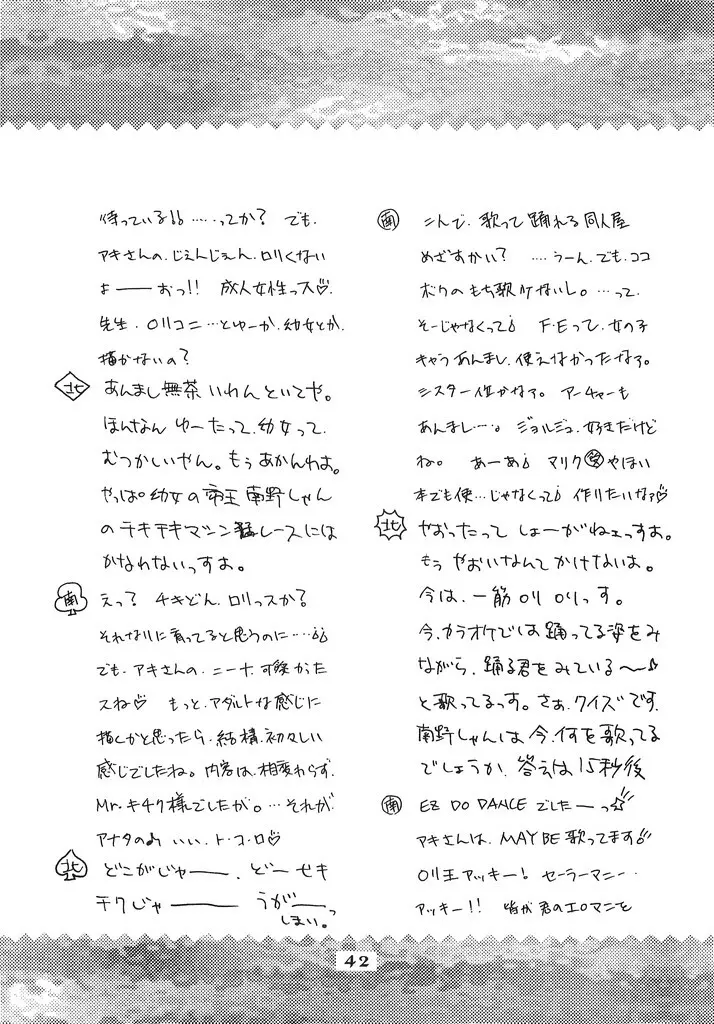 待っている!! ……ってか? でも、
アキさんの、じぇんじぇん、ロリくない
よ――おっ!! 成人女性っス♡
先生、ロリコニ…とゆーか、幼女とか、
描かないの?
北 あんまし無茶いわんといてや。
ほんなん ゆーたって、幼女って、
むつかしいやん。もぅあかんわぁ。
やっぱ幼女の帝王南野しゃん
のチキチキマシン猛レースには
かなわないっすよ。
南 えっ? チキどん、ロリっスか?
それなりに育ってると思うのに……
でも、アキさんの、ニーナ、可愛かった
スね♡ もっと、アダルトな感じに
描くかと思ったら、結構、初々しい
感じでしたね。内容は、相変わらず、
Mr.キチク様でしたが。…それが、
アナタの いい、ト・コ・ロ♡
北 どこがじゃ――、どーせキ
チクじゃ―― うが――っ
しまい。
南 こんで、歌って踊れる同人屋
めざすかい? …うーん、でも、ココ
ボクのもち歌ガないし。…って、
そーじゃなくって♪ F・Eって、女の子
キャラあんまし、使えなかったなァ。
シスター位かなァ。アーチャーも
あんまし…。ジョルジュ、好きだけど
ね。あーあ♪ マリク 受 やほい
本でも使…じゃなくって♪ 作りたいなァ♡
北 やおったって しょーがねェっすよ。
もぅ やおいなんてかけないよ。
今は、一筋ロリロリっす。
今、カラオケでは踊ってる姿をみ
ながら、踊る君をみている〜♪
と歌ってるっす。さぁ、クイズです。
南野しゃんは今、何を歌ってる
でしょうか、答えは15秒後
南 EZ DO DANCE でした―っ☆
アキさんは、MAYBE歌ってます!!
ロリ王アッキー! セーラーマニー・
アッキー!! 皆が君のエロマニを
42